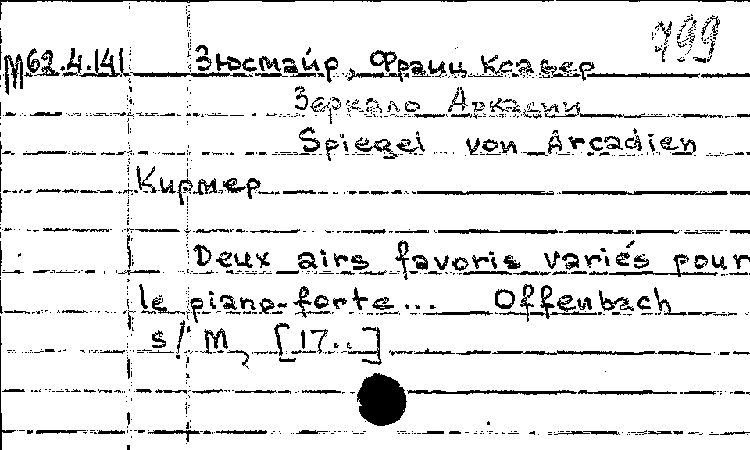 799
М62.4.141 Зюсмайр, Франц Ксавер
Зеркало Аркадии
Spiegel von Arcadien
Кирмер
Deux airs favoris variés pour
le piano-forte... Offenbach
s/M, [17..]